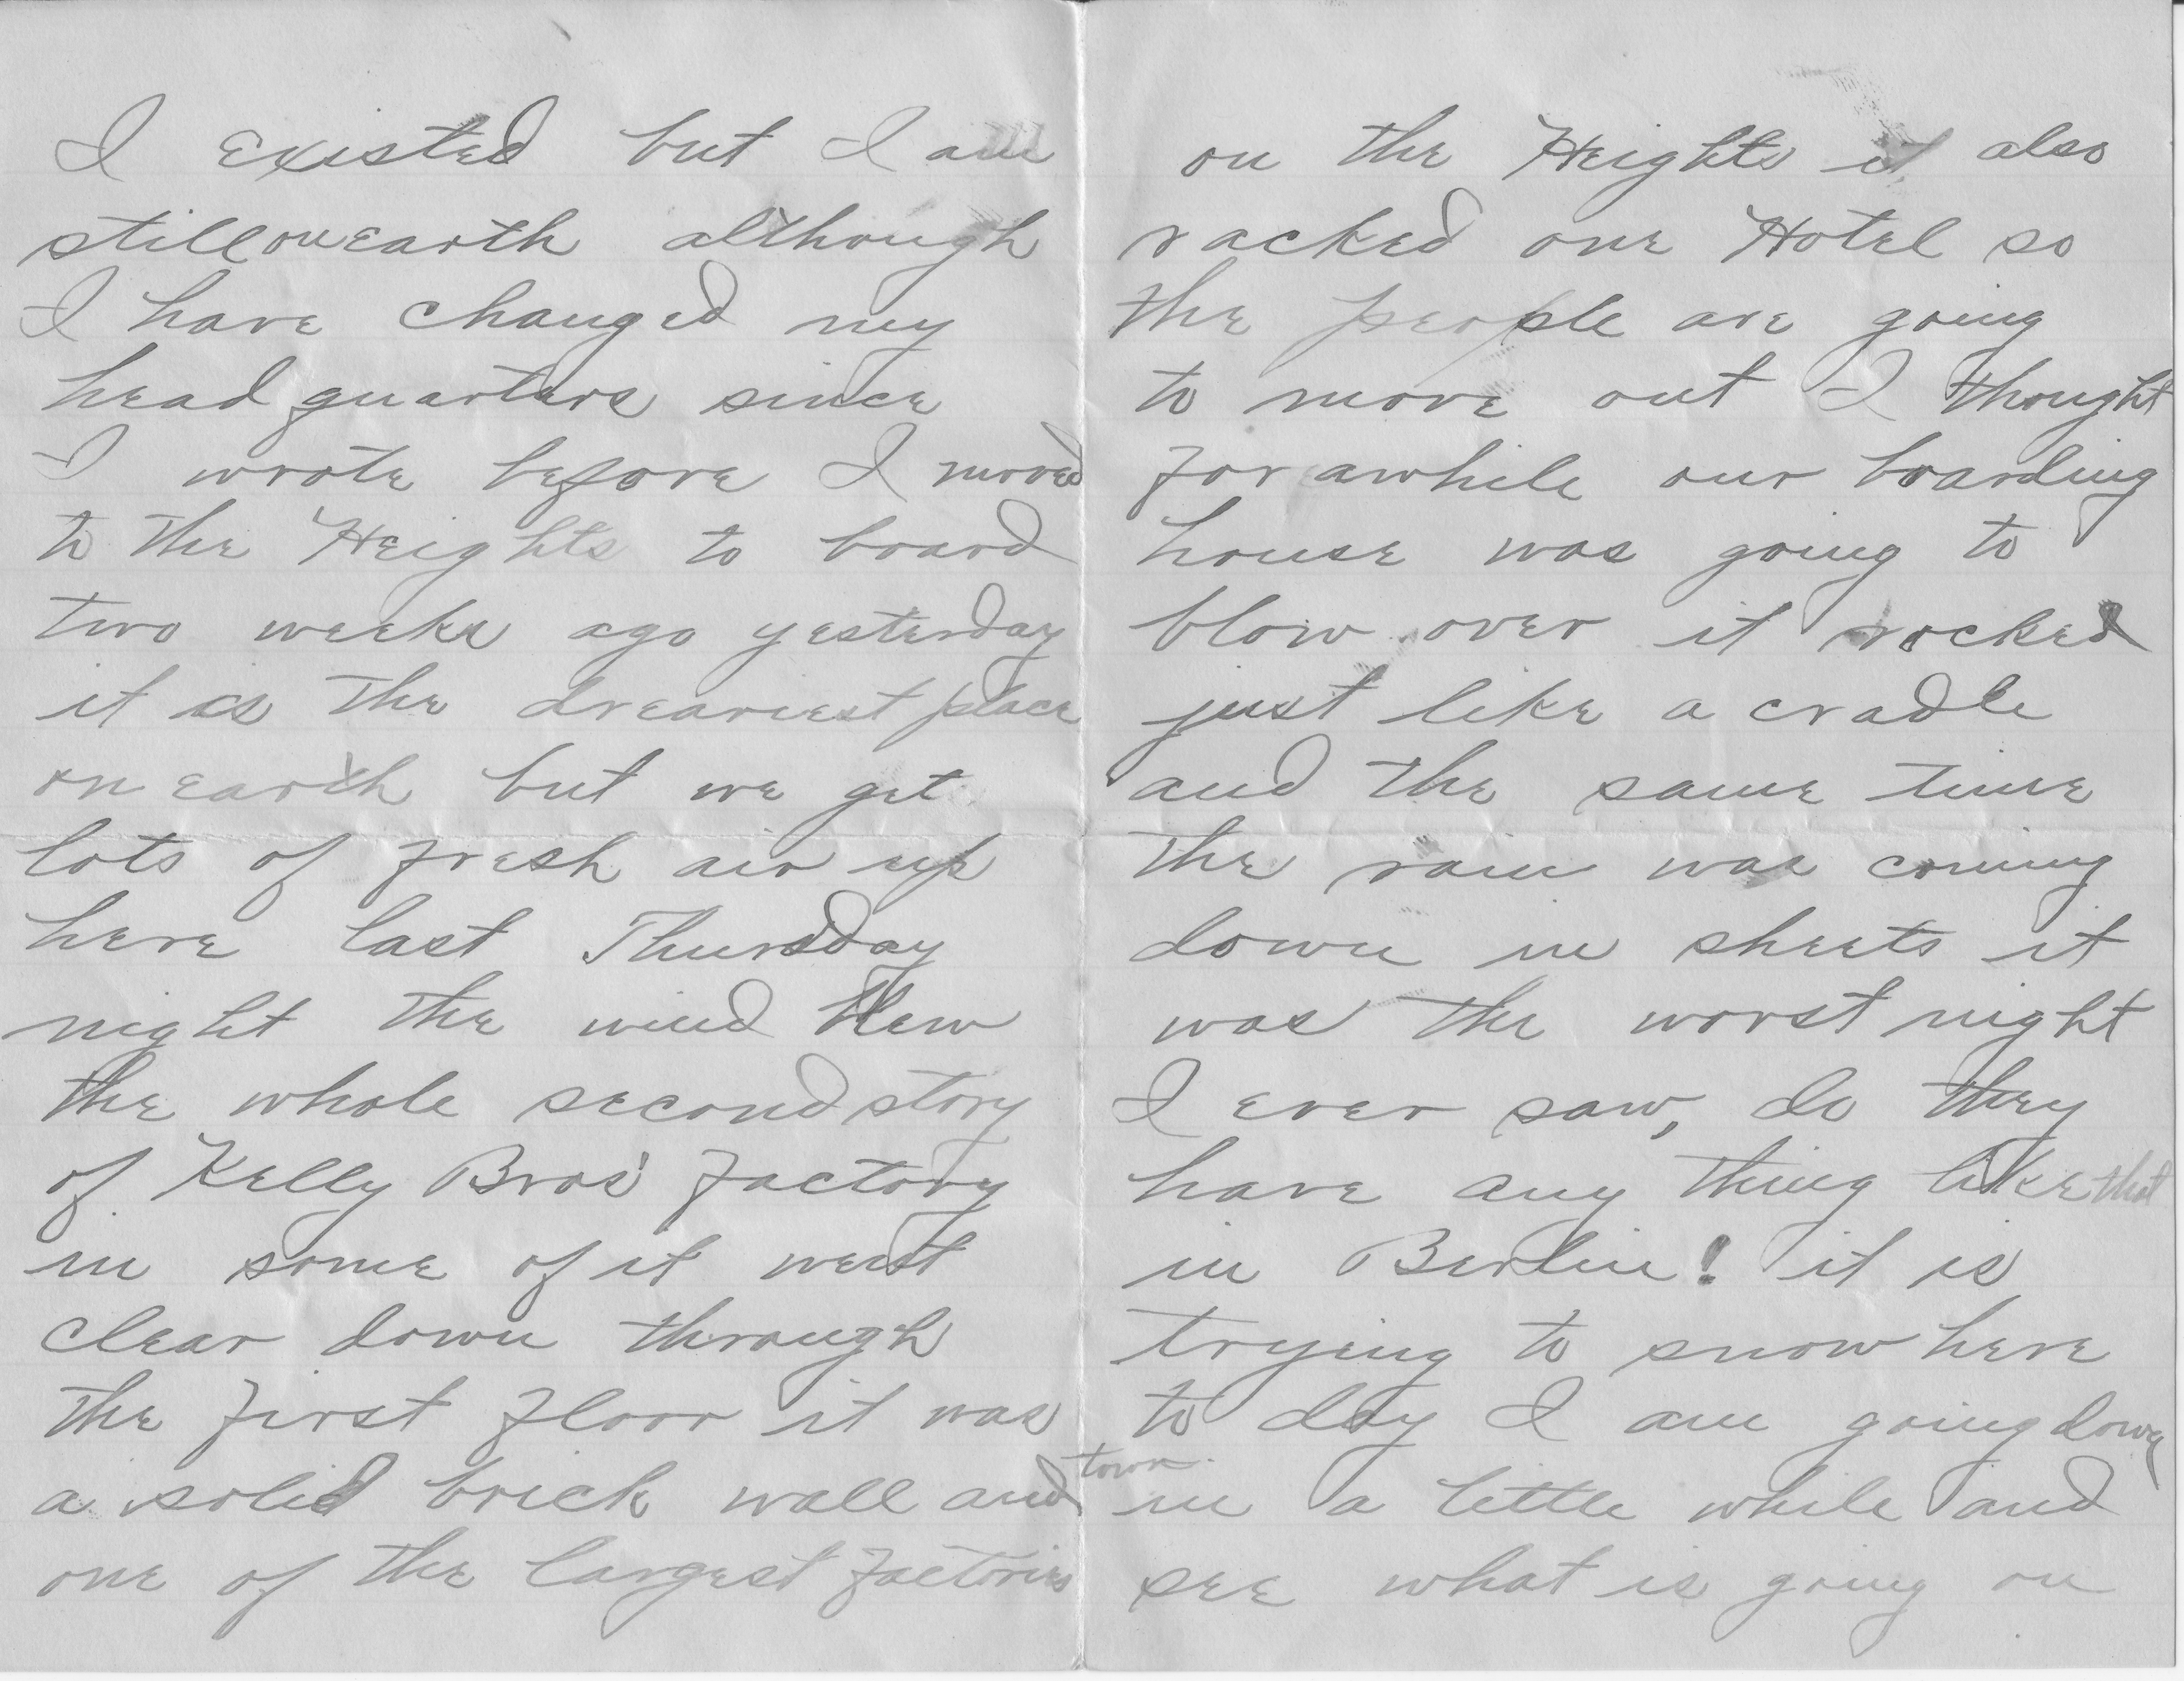 I existed but I am
still on earth although
I have changed my
head quarters since
I wrote before I moved
to the Heights to board
two weeks ago yesterday
it is the dreariest place
on earth but we get
lots of fresh air up
here last Thursday
night the wind blew
the whole second story
of Kelly Bros' factory
in some of it went
clear down through
the first floor it was
a solid brick wall and
one of the largest factories
on the Heights it also
racked one Hotel so
the people are going
to move out I thought
for awhile our boarding
house was going to
blow over it rocked
just like a cradle
and the same time
the rain was coming
down in sheets it
was the worst night
I ever saw, do they
have any thing like that
in Berlin! it is
trying to snow here
to day I am going down
town
in a little while and
see what is going on